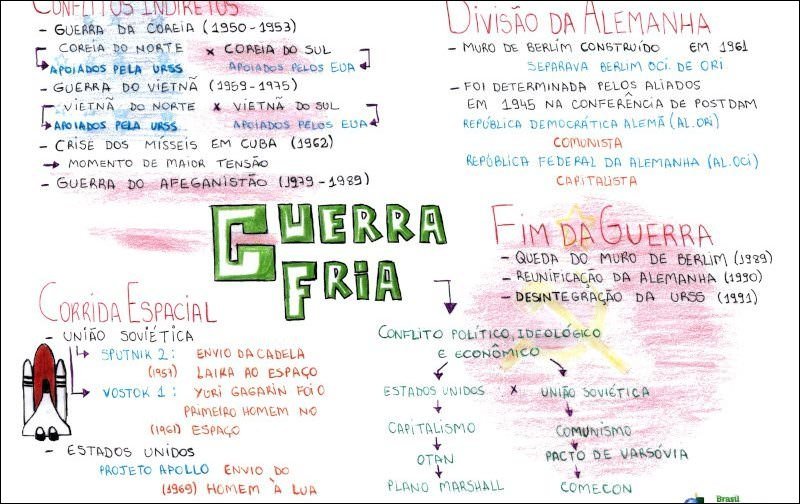 CONFLITOS INDIRETOS
- GUERRA DA COREIA (1950-1953)
COREIA DO NORTE × COREIA DO SUL
APOIADOS PELA URSS APOIADOS PELOS EUA
- GUERRA DO VIETNÃ (1959-1975)
VIETNÃ DO NORTE × VIETNÃ DO SUL
APOIADOS PELA URSS APOIADOS PELOS EUA
- CRISE DOS MISSEIS EM CUBA (1962)
MOMENTO DE MAIOR TENSÃO
- GUERRA DO AFEGANISTÃO (1979-1989)
DIVISÃO DA ALEMANHA
- MURO DE BERLIM CONSTRUÍDO EM 1961
SEPARAVA BERLIM OCI. DE ORI
- FOI DETERMINADA PELOS ALIADOS
EM 1945 NA CONFERÊNCIA DE POSTDAM
REPÚBLICA DEMOCRÁTICA ALEMÃ (AL.ORI)
COMUNISTA
REPÚBLICA FEDERAL DA ALEMANHA (AL.OCI)
CAPITALISTA
GUERRA
FRIA
FIM DA GUERRA
- QUEDA DO MURO DE BERLIM (1989)
- REUNIFICAÇÃO DA ALEMANHA (1990)
- DESINTEGRAÇÃO DA URSS (1991)
CORRIDA ESPACIAL
- UNIÃO SOVIÉTICA
SPUTNIK 2: ENVIO DA CADELA
(1957) LAIKA AO ESPAÇO
VOSTOK 1: YURI GAGARIN FOI O
PRIMEIRO HOMEM NO
(1961) ESPAÇO
- ESTADOS UNIDOS
PROJETO APOLLO ENVIO DO
(1969) HOMEM À LUA
CONFLITO POLÍTICO, IDEOLÓGICO
E ECONÔMICO
ESTADOS UNIDOS × UNIÃO SOVIÉTICA
CAPITALISMO COMUNISMO
OTAN PACTO DE VARSÓVIA
PLANO MARSHALL COMECON
Brasil